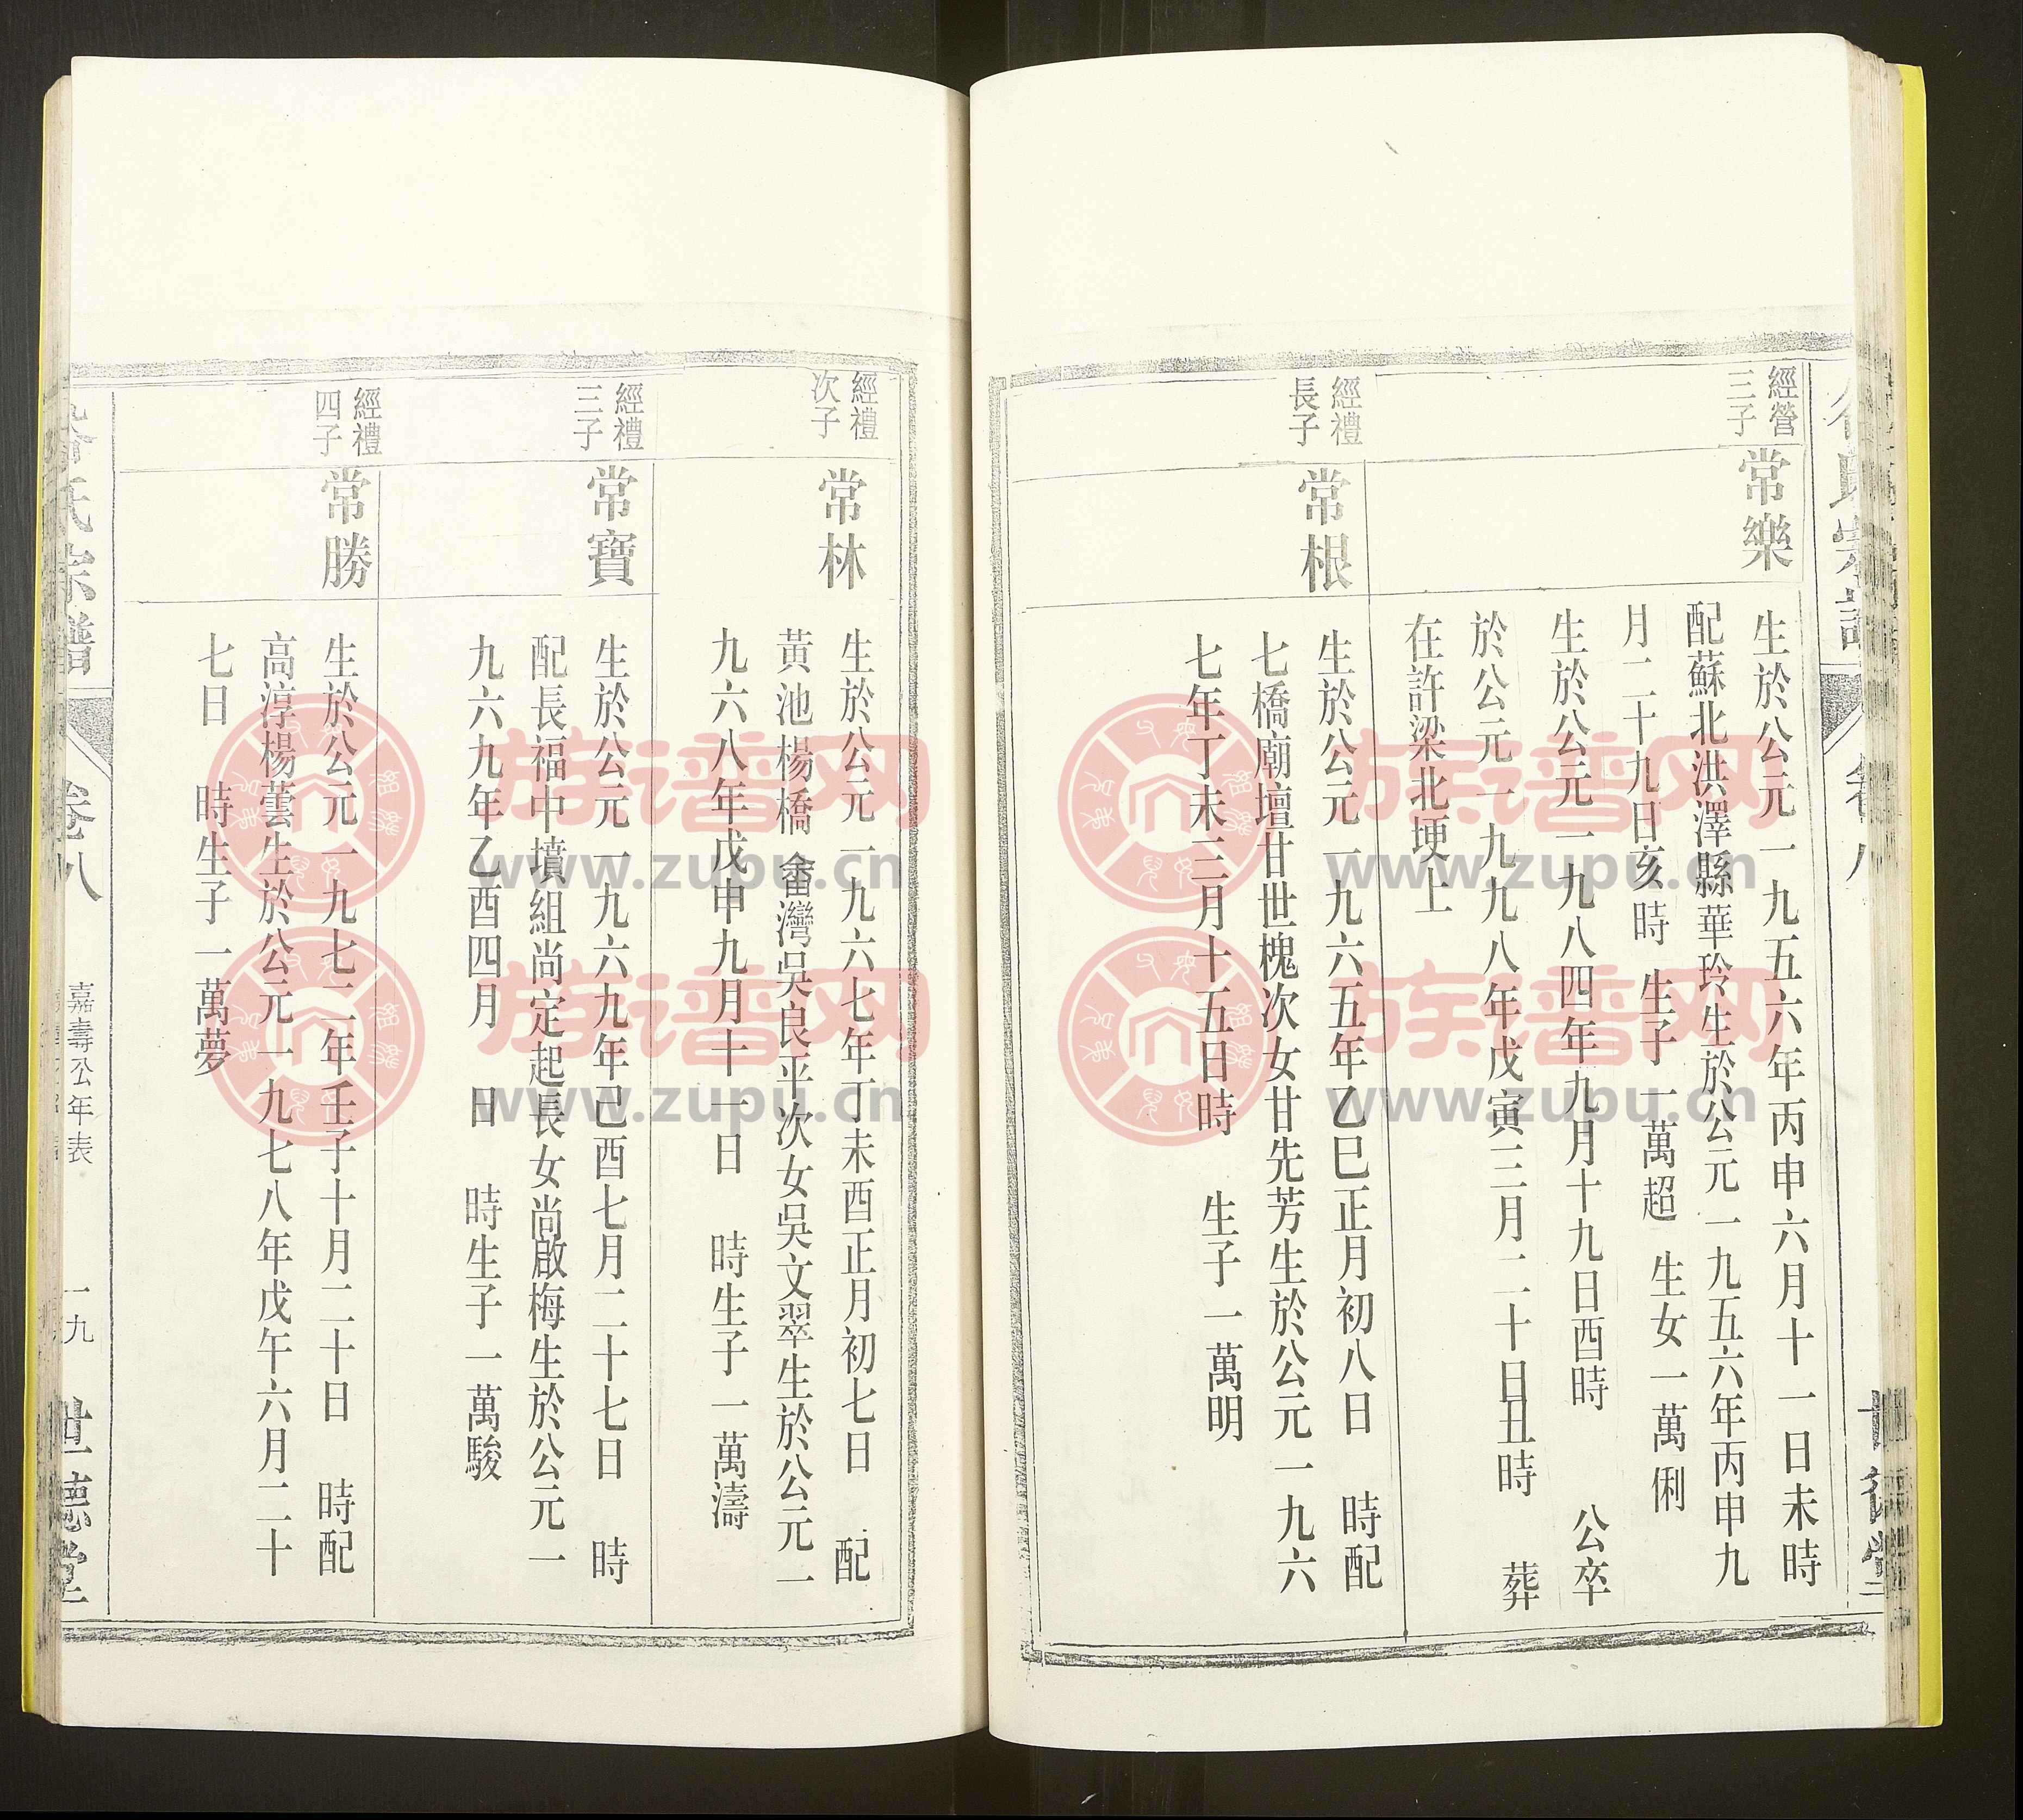 經營
三子
常樂
生於公元一九五六年丙申六月十一日未時
配蘇北洪澤縣華玲生於公元一九五六年丙申九
月二十九日亥時 生子一萬超 生女一萬俐
生於公元一九八四年九月十九日酉時 公卒
於公元一九九八年戊寅三月二十日丑時 葬
在許梁北埂上
經禮
長子
常根
生於公元一九六五年乙巳正月初八日 時配
七橋廟壇甘世槐次女甘先芳生於公元一九六
七年丁未三月十五日時 生子一萬明
經禮
次子
常林
生於公元一九六七年丁未酉正月初七日 配
黃池楊橋畲灣吳良平次女吳文翠生於公元一
九六八年戊申九月十一日 時生子一萬濤
經禮
三子
常寶
生於公元一九六九年己酉七月二十七日 時
配長福中墳組尚定起長女尚啟梅生於公元一
九六九年乙酉四月 日 時生子一萬駿
經禮
四子
常勝
生於公元一九七二年壬子十月二十日 時配
高淳楊蕓生於公元一九七八年戊午六月二十
七日 時生子一萬夢
氏宗譜
卷八
嘉壽公年表
一九
世德堂
族谱网
www.zupu.cn
族谱网
www.zupu.cn
族谱网
www.zupu.cn
族谱网
www.zupu.cn